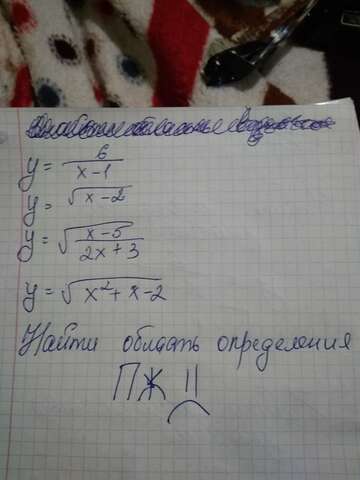 y = 6/(x-1)
y = √(x-2)
y = √((x-5)/(2x+3))
y = √(x²+x-2)
Найти область определения
ПЖ !!